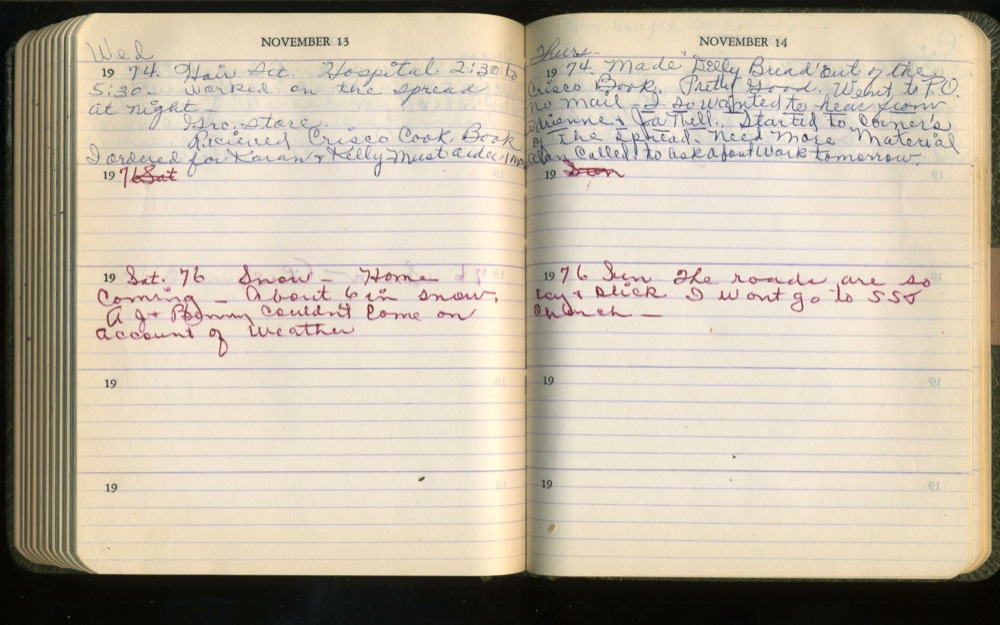 Wed
NOVEMBER 13
19 74. Hair Set. Hospital 2:30 to
5:30 - Worked on the spread
at night -
Gro. store.
Recieved Crisco Cook Book
I ordered for Karan & Kelly Must order 1 mo
19 76 Sat
19 Sat. 76 Snow - Home
Coming - About 6 in snow.
A J & Penny couldn't come on
account of weather
19
19
Thurs.
NOVEMBER 14
19 74. Made "Dilly Bread" out of the
Crisco Book. Pretty Good. Went to P.O.
No mail - I so wanted to hear from
Adrienne & JaNell. Started to Corner's
of The Spread. Need More Material
Alan Called to ask about work tomorrow.
19 Sun
19 76 Sun The roads are so
icy & slick I wont go to SSS
Church -
19
19